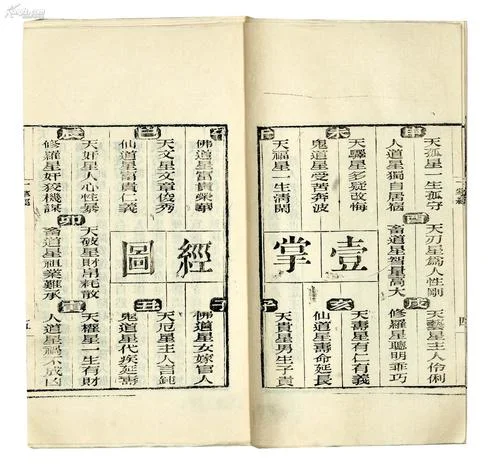 申
天孤星一生孤守
人道星獨自居宿
未
天驛星多疑改悔
鬼道星受苦奔波
午
天福星一生清閑
酉
天刃星爲人性剛
畜道星智星高大
壹掌
戌
天藝星主人伶俐
修羅星聰明乖巧
亥
天壽星有仁有義
仙道星壽命延長
子
天貴星男生子貴
四
午
佛道星富貴榮
巳
天文星文章俊秀
仙道星富貴仁義
辰
天奸星人心性暴
修羅星奸狡機謀
經圖
卯
天破星財帛耗散
畜道星祖業難承
子
佛道星女嫁官人
丑
天厄星主人言鈍
鬼道星代疾延壽
寅
天權星一生有財
人道星禍不成凶
五